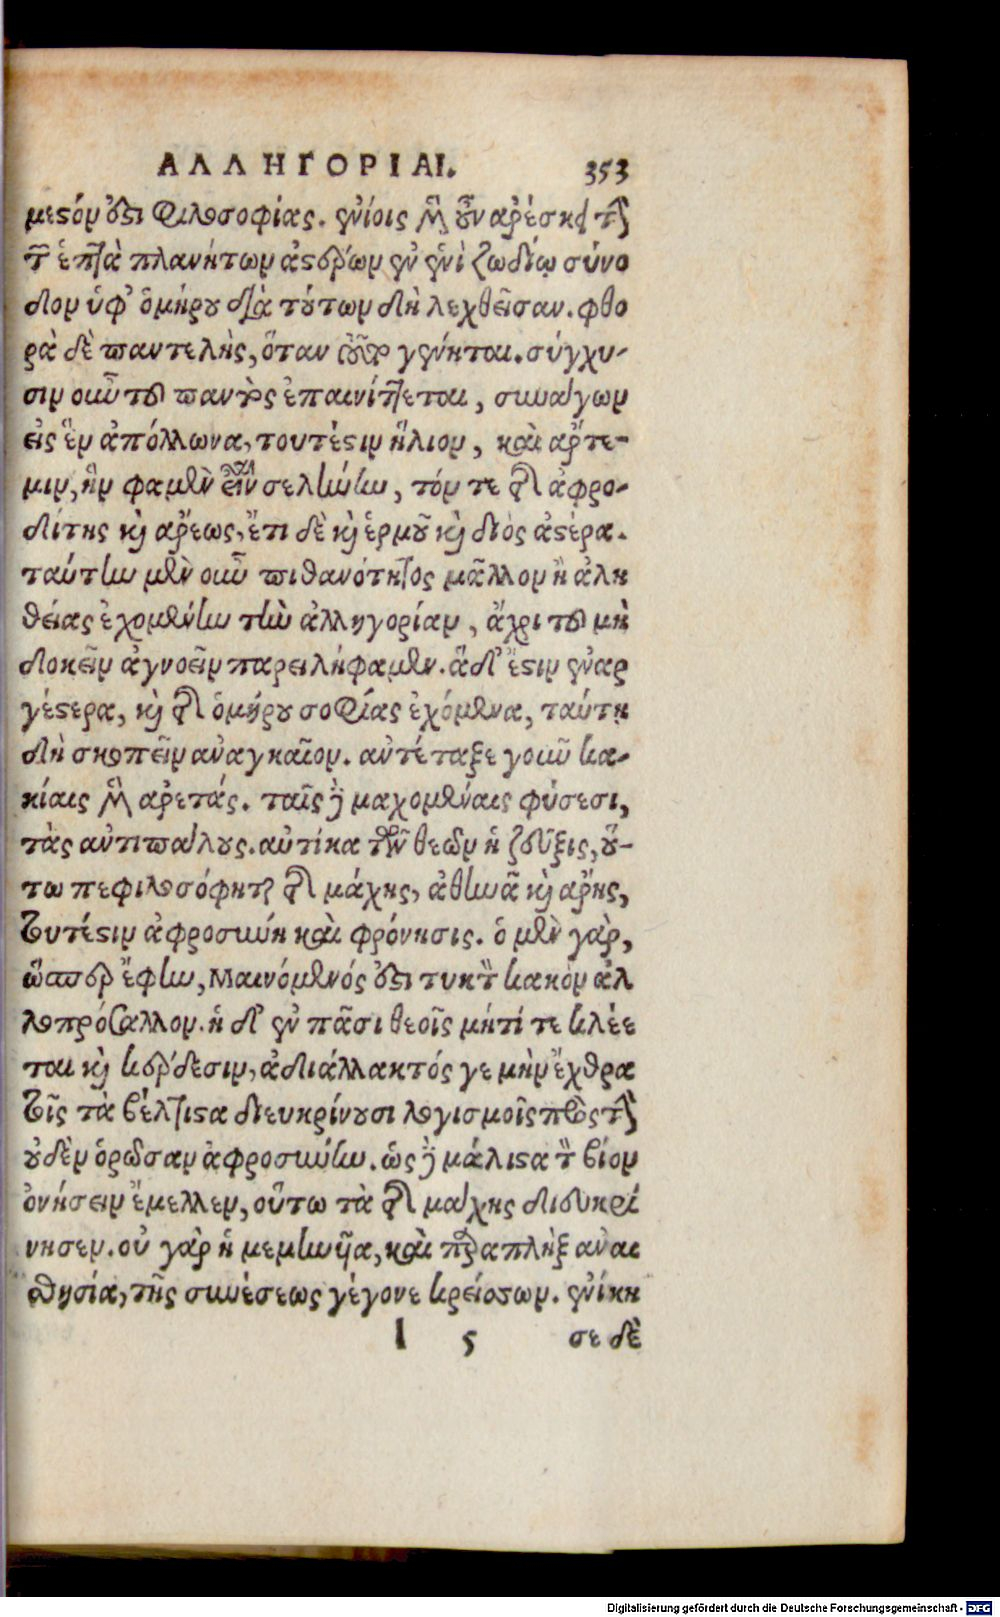 ΑΛΛΗΓΟΡΙΑΙ. 353
μεστόν ἐστι φιλοσοφίας. ἐνίοις μὲν οὖν ἀρέσκει τὴν
τῶν ἑπτὰ πλανήτων ἀστέρων ἐν ἑνὶ ζωδίῳ σύνο
δον ὑφ' ὁμήρου διὰ τούτων δηλεχθεῖσαν. φθο
ρὰ δὲ παντελὴς, ὅταν τοῦτο γένηται. σύγχυ-
σιν οὖν τοῦ παντὸς ἐπαινίττεται, συνάγων
εἰς ἓν ἀπόλλωνα, τουτέστιν ἥλιον, καὶ ἄρτε-
μιν, ἣν φαμὲν εἶναι σελήνην, τόν τε τῆς ἀφρο-
δίτης καὶ ἄρεως, ἔτι δὲ καὶ ἑρμοῦ καὶ διὸς ἀστέρα.
ταύτην μὲν οὖν πιθανότητος μᾶλλον ἢ ἀλη
θείας ἐχομένην τὴν ἀλληγορίαν, ἄχρι τοῦ μὴ
δοκεῖν ἀγνοεῖν παρειλήφαμεν. ἃ δ' ἔστιν ἐναρ
γέστερα, καὶ τῆς ὁμήρου σοφίας ἐχόμενα, ταύτῃ
δὴ σκοπεῖν ἀναγκαῖον. ἀντέταξε γοῦν κα-
κίαις μὲν ἀρετάς. ταῖς δὲ μαχομέναις φύσεσι,
τὰς ἀντιπάλους. αὐτίκα τῶν θεῶν ἡ ζεῦξις, οὕ-
τω πεφιλοσόφηται τῆς μάχης, ἀθηνᾶ καὶ ἄρης,
τουτέστιν ἀφροσύνη καὶ φρόνησις. ὁ μὲν γὰρ,
ὥσπερ ἔφην, Μαινόμενός ἐστι τυκτὸν κακὸν ἀλ
λοπρόσαλλον. ἡ δ' ἐν πᾶσι θεοῖς μήτί τε κλέε
ται καὶ κέρδεσιν, ἀδιάλλακτός γε μὴν ἔχθρα
τοῖς τὰ βέλτιστα διευκρίνουσι λογισμοῖς πρὸς τὴν
οὐδὲν ὁρῶσαν ἀφροσύνην. ὡς δὲ μάλιστα τὸν βίον
ὀνήσειν ἔμελλεν, οὕτω τὰ τῆς μάχης διευκρί
νησεν. οὐ γὰρ ἡ μεμηνυῖα, καὶ παραπλὴξ ἀναι
σθησία, τῆς συνέσεως γέγονε κρείσσων. ἐνίκη
l 5 σε δὲ
Digitalisierung gefördert durch die Deutsche Forschungsgemeinschaft - DFG